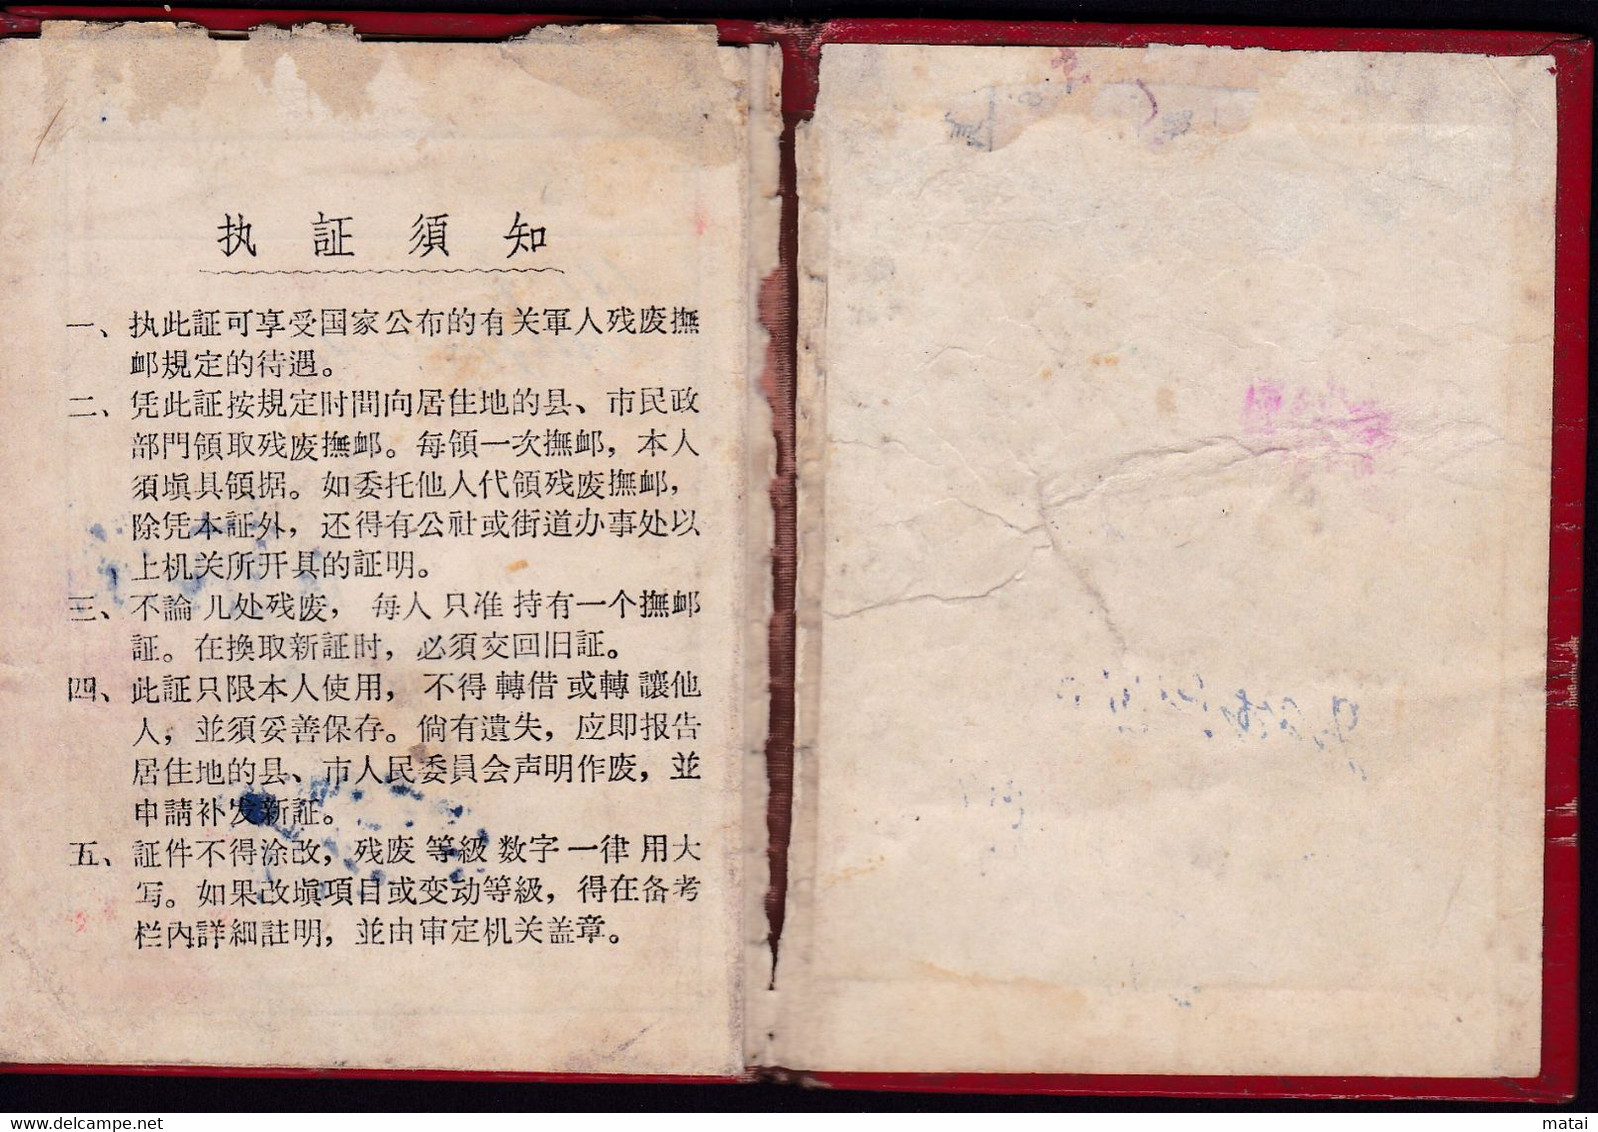 执証須知
一、执此証可享受国家公布的有关軍人残废撫
卹規定的待遇。
二、凭此証按規定时間向居住地的县、市民政
部門領取残废撫卹。每領一次撫卹，本人
須塡具領据。如委托他人代領残废撫卹，
除凭本証外，还得有公社或街道办事处以
上机关所开具的証明。
三、不論儿处残废，每人只准持有一个撫卹
証。在換取新証时，必須交回旧証。
四、此証只限本人使用，不得轉借或轉讓他
人，並須妥善保存。倘有遺失，应即报告
居住地的县、市人民委員会声明作废，並
申請补发新証。
五、証件不得涂改，残废等級数字一律用大
写。如果改塡項目或变动等級，得在备考
栏內詳細註明，並由审定机关盖章。
delcampe.net
matai